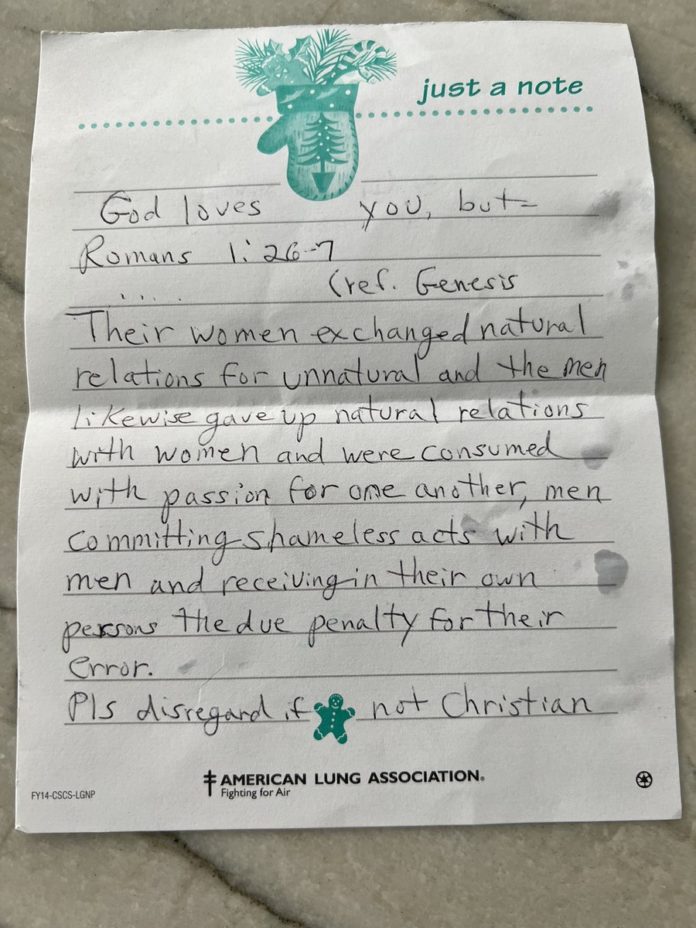 just a note
God loves you, but-
Romans 1:26-7
.... (ref. Genesis
Their women exchanged natural
relations for unnatural and the men
likewise gave up natural relations
with women and were consumed
with passion for one another, men
committing shameless acts with
men and receiving in their own
persons the due penalty for their
error.
Pls disregard if not Christian
AMERICAN LUNG ASSOCIATION®
Fighting for Air
FY14-CSCS-LGNP